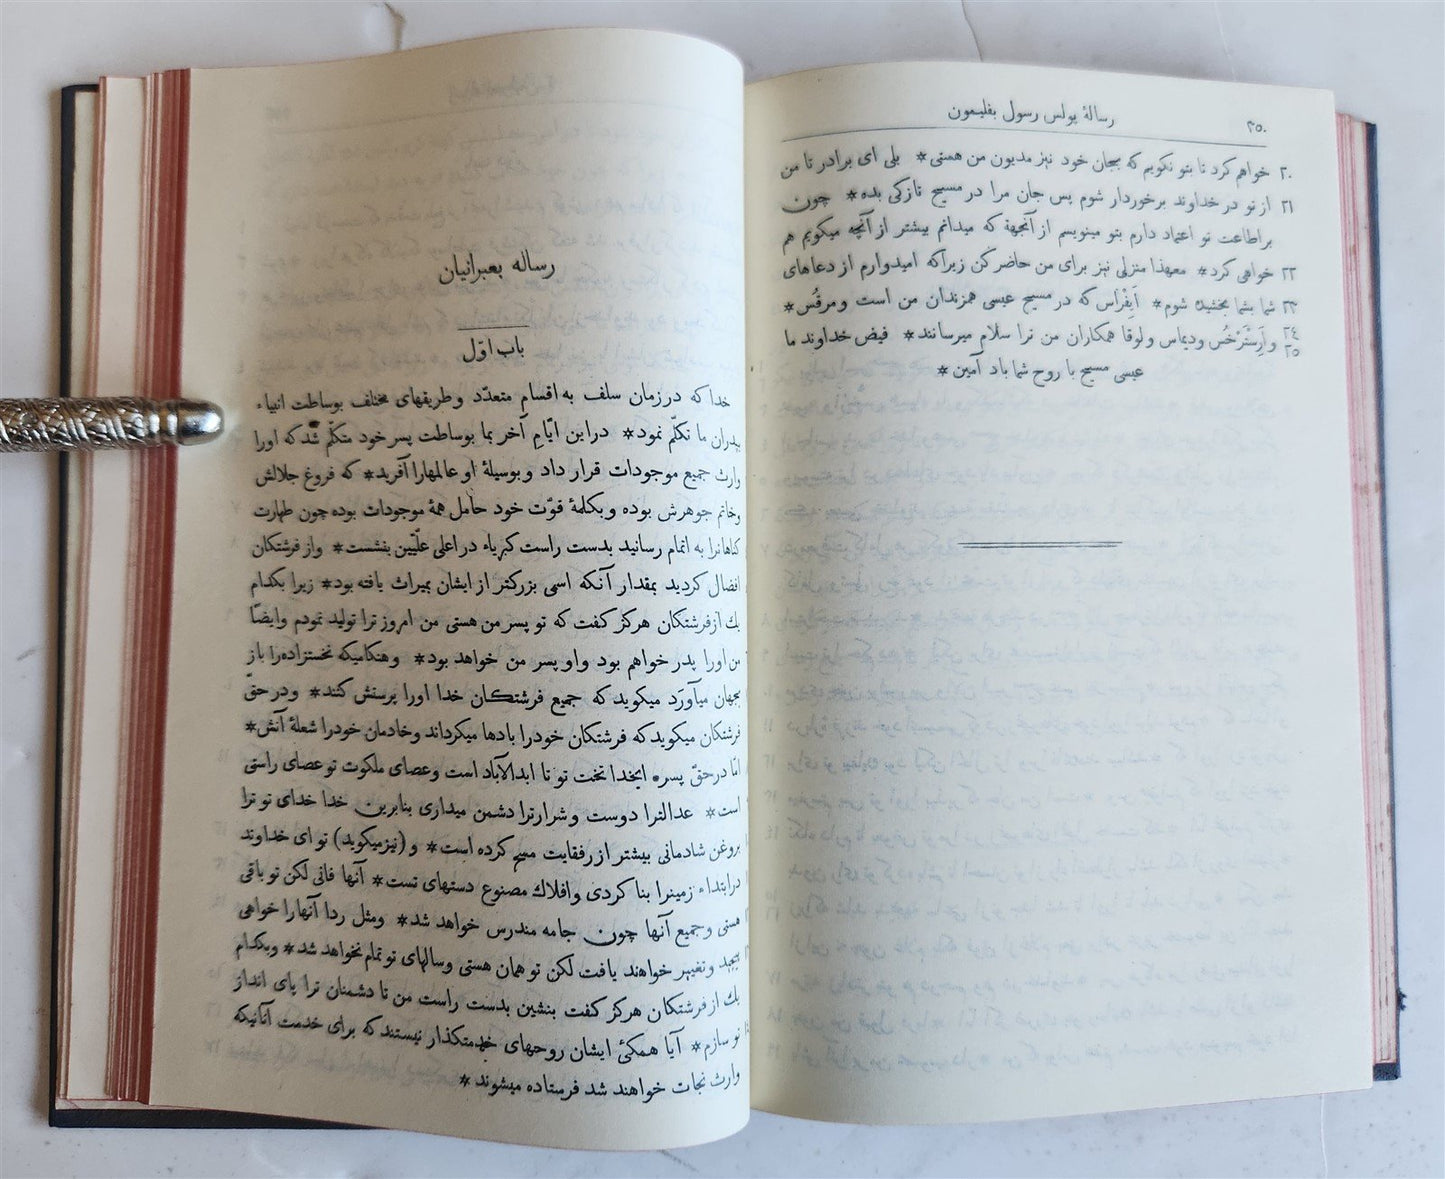 ٣٥٠
رسالهٔ پولس رسول بفلیمون
٢٠ خواهم کرد تا بتو نکویم که بجان خود نیز مدیون من هستی * بلی ای برادر تا من
٢١ از تو در خداوند برخوردار شوم پس جان مرا در مسیح تازکی بده * چون
بر اطاعت تو اعتماد دارم بتو مینویسم از آنجهة که میدانم بیشتر از آنچه میکویم هم
٢٢ خواهی کرد * معهذا منزلی نیز برای من حاضر کن زیرا که امیدوارم از دعاهای
٢٣ شما بشما بخشیده شوم * اَپفْراس که در مسیح عیسی همزندان من است و مرقُس *
٢٤ و اَرِسْتَرْخُس و دیماس و لوقا همکاران من ترا سلام میرسانند * فیض خداوند ما
٢٥ عیسی مسیح با روح شما باد آمین *
رساله بعبرانیان
باب اوّل
خدا که در زمان سلف به اقسام متعدّد و طریقهای مختلف بوساطت انبیاء
بپدران ما تکلّم نمود * در این ایّامِ آخر بما بوساطت پسر خود متکلّم شد که اورا
وارث جمیع موجودات قرار داد و بوسیلهٔ او عالمهارا آفرید * که فروغ جلالش
و خاتم جوهرش بوده و بکلمهٔ قوّت خود حامل همهٔ موجودات بوده چون طهارت
کناهانرا به اتمام رسانید بدست راست کبریاء در اعلی علّیّین بنشست * و از فرشتکان
افضل کردید بمقدار آنکه اسمی بزرکتر از ایشان بمیراث یافته بود * زیرا بکدام
یك از فرشتکان هرکز کفت که تو پسر من هستی من امروز ترا تولید نمودم و ایضًا
من اورا پدر خواهم بود و او پسر من خواهد بود * و هنکامیکه نخستزادهرا باز
بجهان میآورَد میکوید که جمیع فرشتکان خدا اورا پرستش کنند * و در حقّ
فرشتکان میکوید که فرشتکان خودرا بادها میکرداند و خادمان خودرا شعلهٔ آتش *
امّا در حقّ پسر * ایخدا تخت تو تا ابدالآباد است و عصای ملکوت تو عصای راستی
است * عدالترا دوست و شرارترا دشمن میداری بنابرین خدا خدای تو ترا
بروغن شادمانی بیشتر از رفقایت مسح کرده است * و (نیز میکوید) تو ای خداوند
در ابتداء زمینرا بنا کردی و افلاك مصنوع دستهای تست * آنها فانی لکن تو باقی
هستی و جمیع آنها چون جامه مندرس خواهد شد * و مثل ردا آنهارا خواهی
پیچید و تغییر خواهند یافت لکن تو همان هستی و سالهای تو تمام نخواهد شد * و بکدام
یك از فرشتکان هرکز کفت بنشین بدست راست من تا دشمنان ترا پای انداز
تو سازم * آیا همکئ ایشان روحهای خدمتکذار نیستند که برای خدمت آنانیکه
وارث نجات خواهند شد فرستاده میشوند *